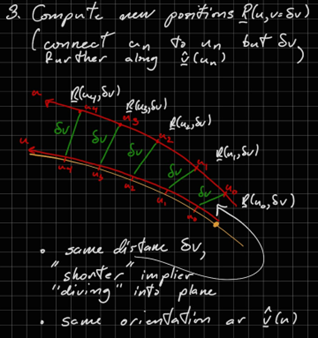 3. Compute new positions R(u,v=δv)
(connect un to un but δv
further along v̂(un))
R(u4,δv)
R(u3,δv)
R(u2,δv)
R(u1,δv)
R(u0,δv)
u
u4
u3
u2
u1
u0
δv
δv
δv
δv
δv
u
u4
u3
u2
u1
u0
• same distance δv,
"shorter" implies
"diving" into plane
• same orientation as v̂(u)